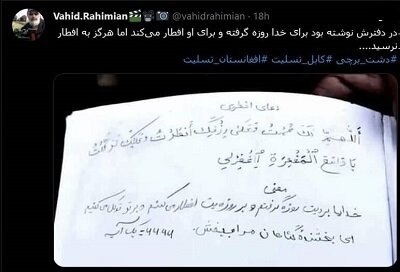 Vahid.Rahimian @vahidrahimian · 18h
در دفترش نوشته بود برای خدا روزه گرفته و برای او افطار می‌کند اما هرگز به افطار
نرسید....
#دشت_برچی #کابل_تسلیت #افغانستان_تسلیت
دعای افطاری
اللهم لك صمت وعلی رزقك افطرت وعليك توکلت
یا واسع المغفرة اغفرلی
معنی
خدایا برایت روزه گرفتم و بر روزیت افطار می‌کنم و بر تو توکل می‌کنم
ای بخشنده گناهان مرا ببخش.